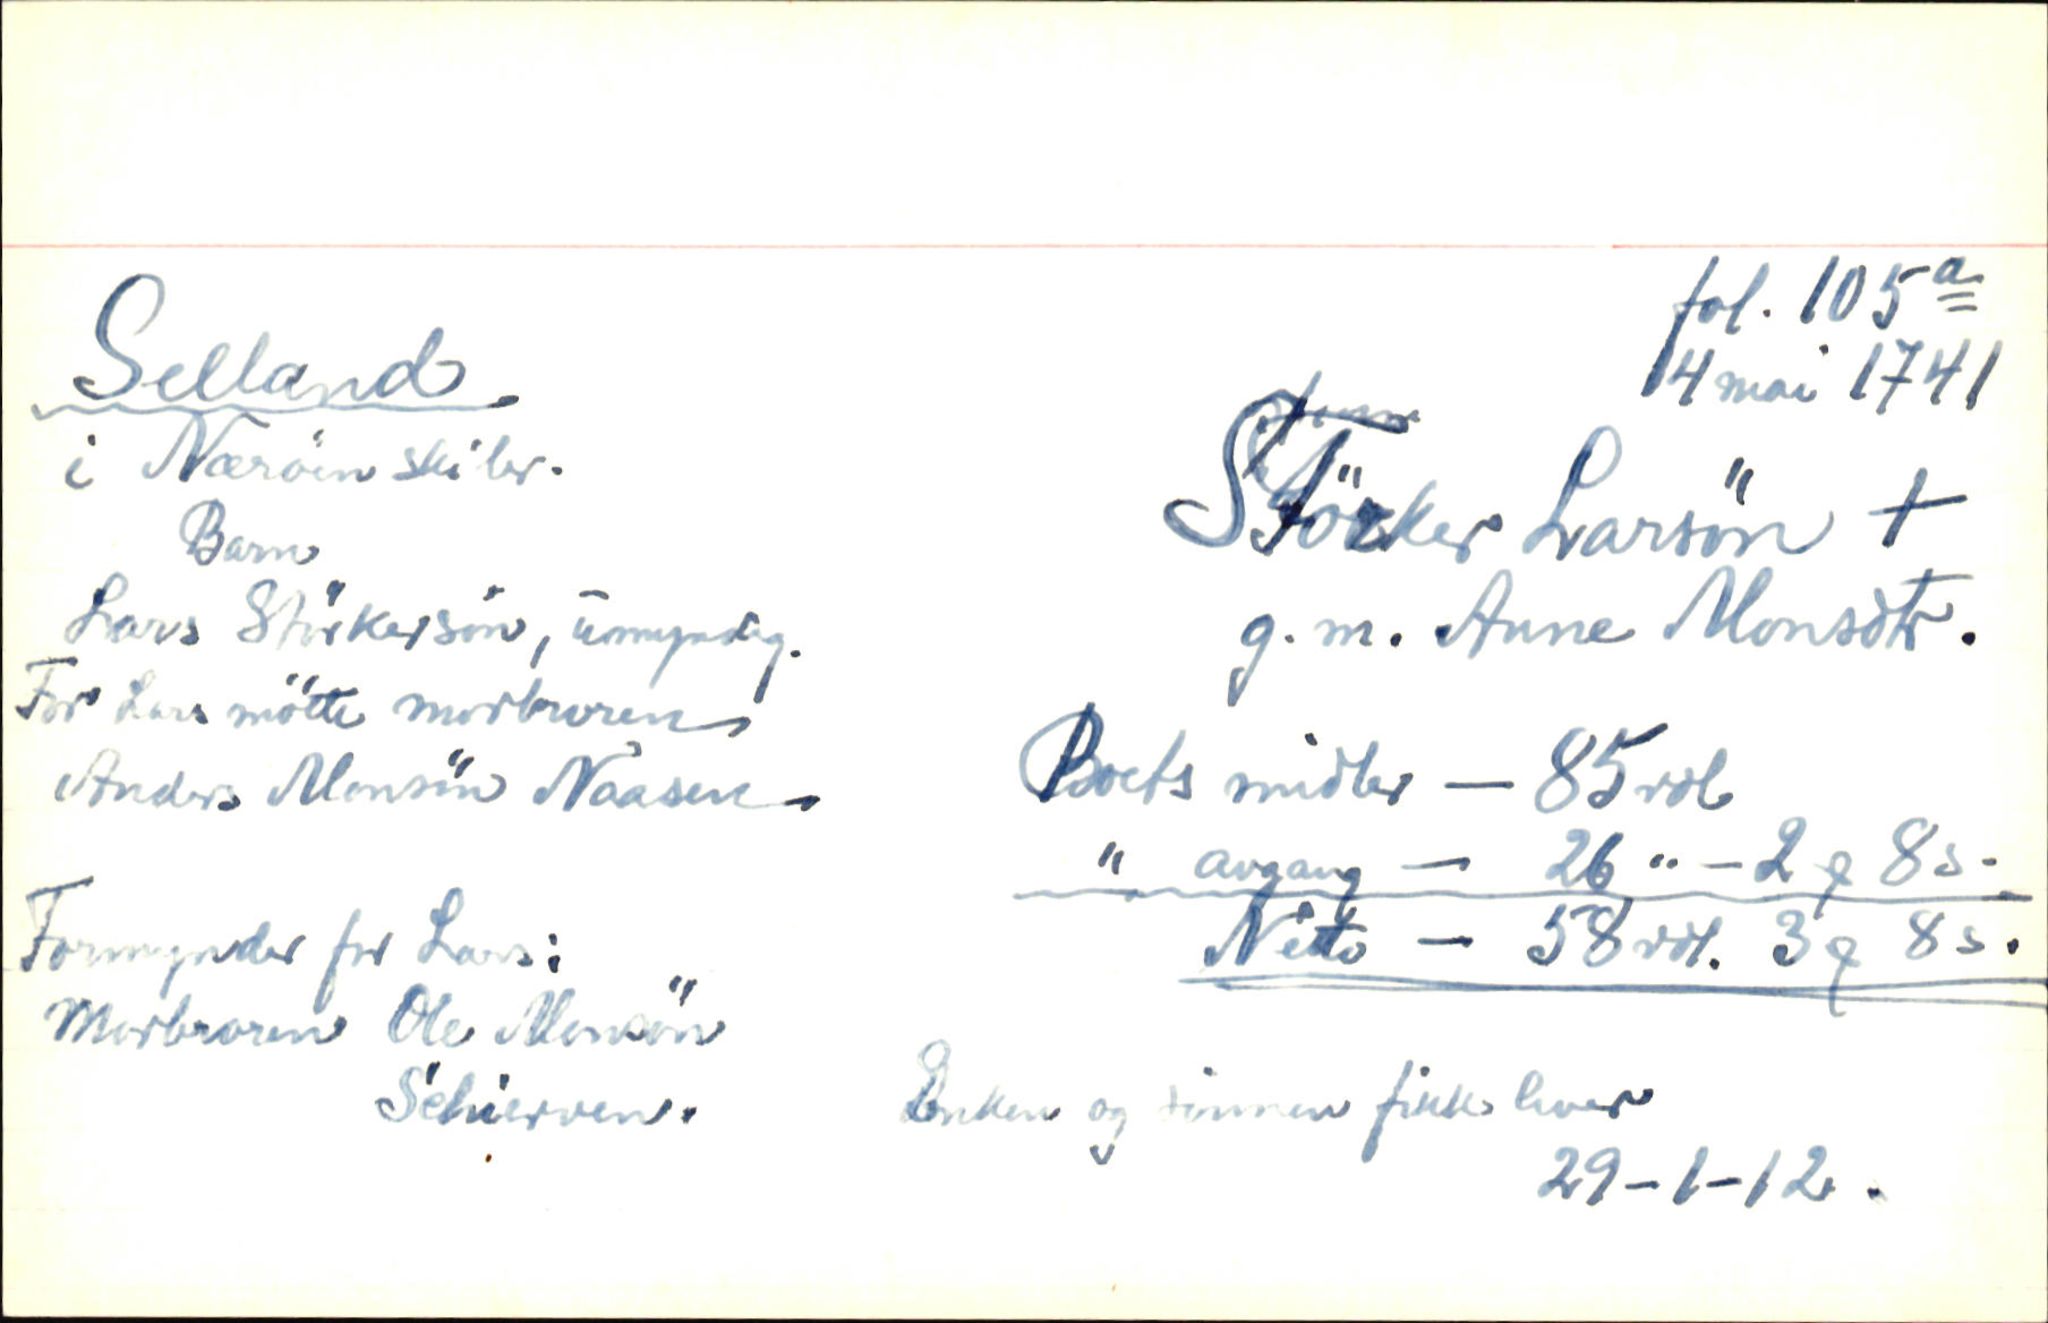 fol. 105a
14 mai 1741
Selland
i Næröen skibr.
Barn
Lars Störkersön, umyndig.
For Lars mötte morbroren
Anders Monsön Naasen
Formynder for Lars:
Morbroren Ole Monsön
Schierven.
Störker Larsön +
g. m. Anne Monsdtr.
Boets midler — 85 rdl
" avgang — 26 " — 2 ϙ 8 s.
Netto — 58 rdl. 3 ϙ 8 s.
Enken og sönnen fikk hver
29-1-12.